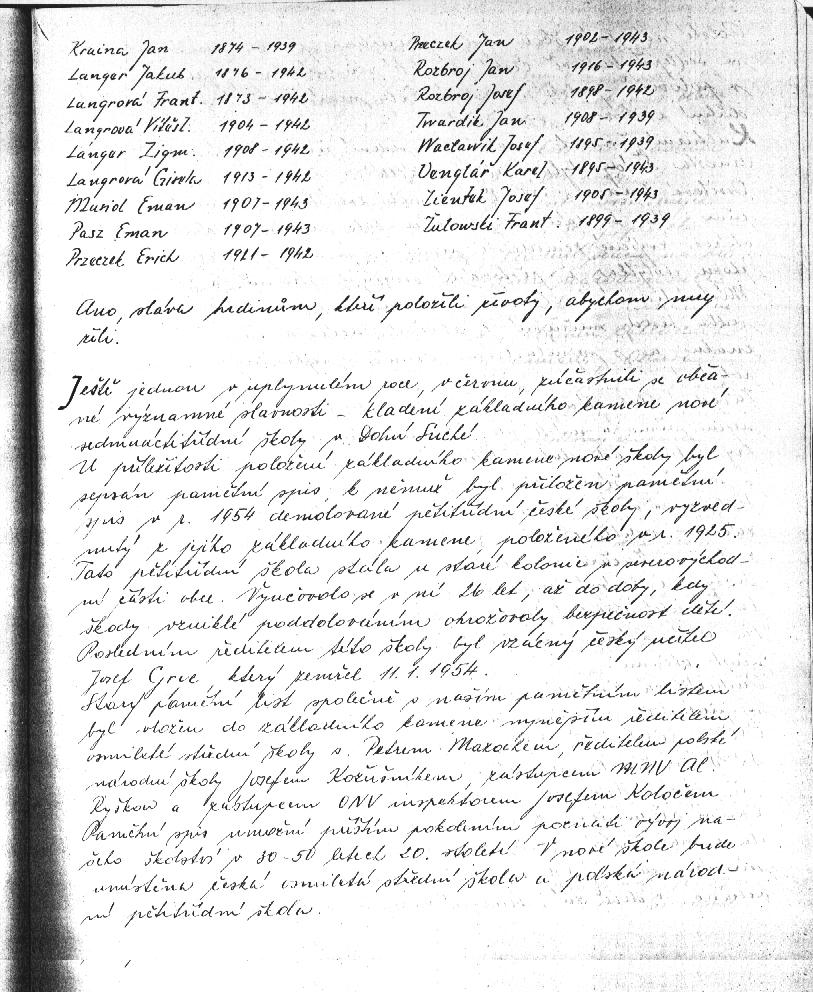 Kraina Jan 1874 - 1939
Langer Jakub 1876 - 1942
Langrová Frant. 1873 - 1942
Langrová Vítězl. 1904 - 1942
Langer Zigm. 1908 - 1942
Langrová Gizela 1913 - 1942
Musiol Eman 1907 - 1943
Pasz Eman 1907 - 1943
Przeczek Erich 1921 - 1942
Przeczek Jan 1902 - 1943
Rozbroj Jan 1916 - 1943
Rozbroj Josef 1898 - 1942
Twardik Jan 1908 - 1939
Wacławik Josef 1895 - 1939
Venglář Karel 1895 - 1943
Zientek Josef 1905 - 1943
Żułowski Frant. 1899 - 1939
Ano, sláva hrdinům, kteří položili životy, abychom my
žili.
Ještě jednou v uplynulém roce, v červnu, zúčastnili se obča-
né významné slavnosti - kladení základního kamene nové
sedmnáctitřídní školy v Dolní Suché.
U příležitosti položení základního kamene nové školy byl
sepsán pamětní spis, k němuž byl přiložen pamětní
spis v r. 1954 demolované pětitřídní české školy, vyzved-
nutý z jejího základního kamene, položeného v r. 1925.
Tato pětitřídní škola stála u staré kolonie v severovýchod-
ní části obce. Vyučovalo se v ní 26 let, až do doby, kdy
škody vzniklé poddolováním ohrožovaly bezpečnost dětí.
Posledním ředitelem této školy byl vzácný český učitel
Josef Grve, který zemřel 11. 1. 1954.
Starý pamětní list společně s naším pamětním listem
byl vložen do základního kamene nynějším ředitelem
osmileté střední školy s. Petrem Mazochem, ředitelem polské
národní školy Josefem Kožušníkem, zástupcem MNV Al.
Ryškou a zástupcem ONV inspektorem Josefem Koločem
Pamětní spis umožní příštím pokolením poznati vývoj na-
šeho školství v 30-50 letech 20. století. V nové škole bude
umístěna česká osmiletá střední škola a polská národ-
ní pětitřídní škola.